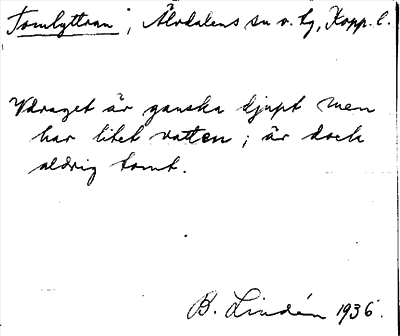 Tombyttran, Älvdalens sn o. tg, Kopp. l.
Vdraget är ganska djupt men
har litet vatten; är dock
aldrig tomt.
B. Lindén 1936.